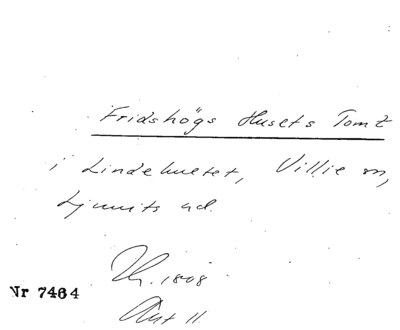 Fridshögs Husets Tomt
i Lindehultet, Villie sn,
Ljunits hd.
1808
Nr 7464
Akt 11.